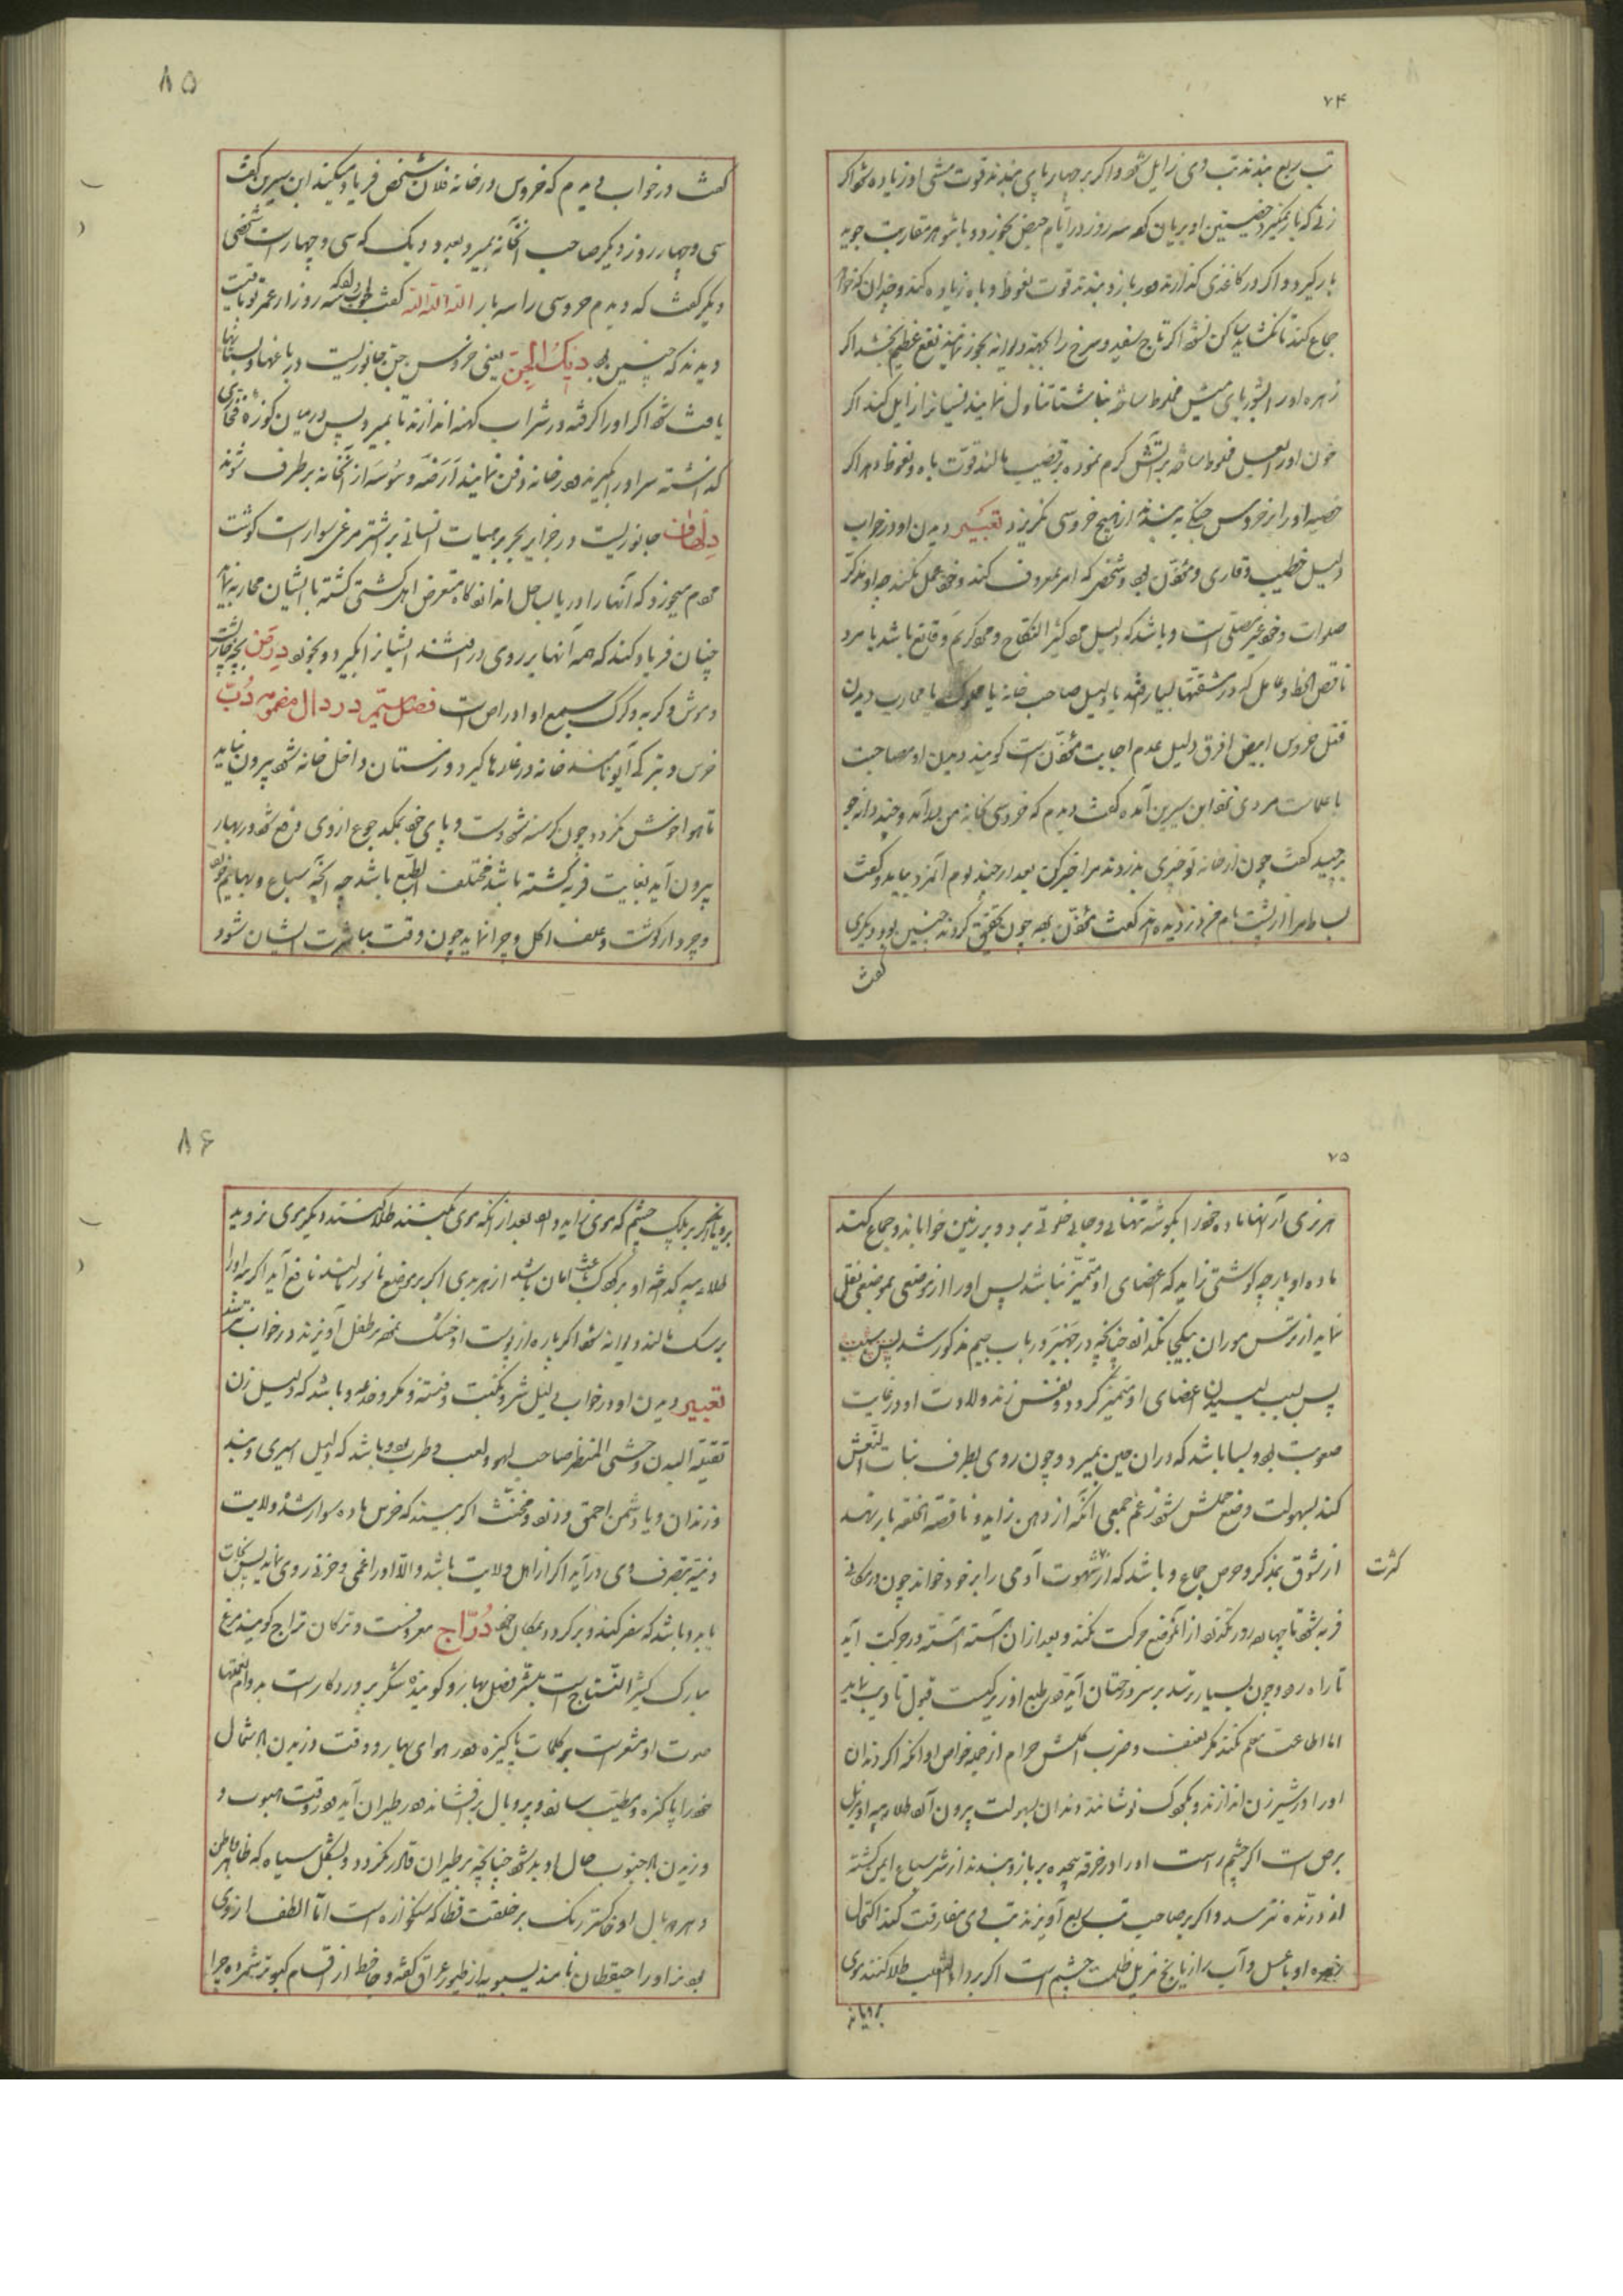 ۷۴
تب ربع بندند تب وی زایل شود و اکر بر چهارپای بندند قوت مشی او زیاده شود اکر
زنی که بار نمیکیرد خصیتین او بریان کرده سه روز در ایام حیض بخورد و با شوهر مقاربت جوید
بار کیرد و اکر در کاغذی کذارند و در بازو بندند قوت نعوظ و باه زیاده کند و چندان که خواهد
جماع کند تا نکشاید ساکن نشود اکر تاج سفید و سرخ را بجهة دیوانه بخور نمایند نفع عظیم بخشد اکر
زهره او را بشوربای میش مخلوط ساخته ناشتا تناول نمایند نسیان زایل کند اکر
خون او را بعسل مخلوط ساخته بر آتش کرم نموده بر قضیب مالند قوت باه و نعوظ دهد اکر
خصیه او را بر خروس جنکی به بندند از هیچ خروسی نکریزد تعبیر دیدن او در خواب
دلیل خطیب و قاری و مؤذن بود و شخصی که امر بمعروف کند و خود عمل نکند چه او مذکر
صلوات و خود غیر مصلی است و باشد که دلیل مرد کثیر النکاح و مرد کریم و قانع باشد یا مرد
ناقص الحظ و عامل که در مشقتها بسیار افتد یا دلیل صاحب خانه یا مملوک یا محارب دیدن
قتل خروس ابیض افرق دلیل عدم اجابت مؤذن است کویند دیدن او مصاحبت
با علماست مردی نزد ابن سیرین آمده کفت دیدم که خروسی بخانه من درآمد و چند دانه جو
برچید کفت چون از خانه تو چیزی بدزدند مرا خبر کن بعد از چند یوم آنمرد بیامد و کفت
بساط مرا از پشت بام فرو دزدیده اند کفت مؤذن برده چون تحقیق کردند چنین بود و دیکری
کفت
۸۵
کفت در خواب دیدم که خروس در خانه فلان شخص فریاد میکند ابن سیرین کفت
سی و چهار روز دیکر صاحب آنخانه بمیرد بعدد دیک که سی و چهار است شخصی
دیکر کفت که دیدم خروسی را سه بار الله الله الله کفت جواب داد که سه روز از عمر تو باقیست
دیدند که چنین بود دیک الجن یعنی خروس جن جانوریست در باغها و بستانها
یافت شود اکر او را کرفته در شراب کهنه اندازند تا بمیرد پس در میان کوزه فخاری
کذاشته سر او را بکیرند و در خانه دفن نمایند ارضه و سوسه از آنخانه برطرف شوند
دلهاث جانوریست در جزایر بحر بر هیات انسانی بر اشتر مرغی سوار است کوشت
مردم میخورد که آنها را دریا بساحل اندازد کاه متعرض اهل کشتی کشته با ایشان محاربه نماید
چنان فریاد کند که همه آنها بر روی درافتند ایشانرا بکیرد و بخورد درص بچه خارپشت
و موش و کربه و کرک جمع او ادراص است فصل سیم در دال مضمومه دب
خرس و بترکی آیو نامند خانه در غارها کیرد و زمستان داخل خانه شود بیرون نیاید
تا هوا خوش نکردد چون کرسنه شود دست و پای خود بمکد جوع از وی دفع شود در بهار
بیرون آید بغایت فربه کشته باشد مختلف الطبع باشد چه آنچه سباع و بهایم خورد
و چرد از کوشت و علف اکل و چرا نماید چون وقت مباشرت ایشان شود
۷۵
هر نری از آنها ماده خود را بکوشه تنهائی و جای خلوتی برد و بر زمین خواباند و جماع کند
ماده او پارچه کوشتی زاید که اعضای او متمیز نباشد پس او را از موضعی بموضعی نقل
نماید از ترس موران بیکجا نکذارد چنانچه در جهنبر در باب جیم مذکور شد پس بسبب
پس بسبب لیسیدن اعضای او متمیز کردد و نفس زند و ولادت او در غایت
صعوبت بود و بسا باشد که در آن حین بمیرد و چون روی بطرف بنات النعش
کند بسهولت وضع حملش شود زعم جمعی آنکه از دهن زاید و ناقصة الخلقه بار نهد
از شوق بذکر و حرص جماع و باشد که از شهوت آدمی را بر خود خواند چون در مکانی
کثرت
فربه شود تا چهارده روز نکذرد از آنموضع حرکت نکند و بعد از آن آهسته آهسته در حرکت آید
تا راه رود چون بسیار ترسد بر سر درختان آید در طبع او زیرکیست قبول تادیب نماید
اما اطاعت معلم نکند مکر بعنف و ضرب اکلش حرام از جمله خواص او آنکه اکر دندان
او را در شیر زن اندازند و بکودک نوشانند دندان بسهولت بیرون آرد طلا پیه او مزیل
برص است اکر چشم راست او را در خرقه پیچیده بر بازو بندند از شر سباع ایمن کشته
از درنده نترسد و اکر بر صاحب تب ربع آویزند تب وی مفارقت کند اکتحال
زهره او با عسل و آب رازیانج مزیل ظلمت چشم است اکر بر داء الثعلب طلا کنند موی
برویاند
۸۶
برویاند اکر بر پلک چشم که موی زاید دارد بعد از آنکه موی بکنند طلا کنند دیکر موی نروید
طلاء پیه کداخته او بر کودک باعث امان باشد از هر بدی اکر بر موضع ناسور مالند نافع آید اکر پیه او را
بر سک مالند دیوانه شود اکر پاره از پوست او خشک نموده بر طفل آویزند در خواب نترسد
تعبیر دیدن او در خواب دلیل شر و نکبت و فتنه و مکر و خدعه و باشد که دلیل زن
ثقیلة البدن وحشی المنظر صاحب لهو و لعب و طرب بود و باشد که دلیل اسیری و بند
و زندان و یا دشمن احمق و دزد و مخنث اکر بیند که خرس ماده سوار شده ولایت
دنیه بتصرف وی درآید اکر از اهل ولایت باشد و الا او را غمی و خوفی روی نماید پس نجات
یابد و باشد که سفر کند و برکردد بمکان خود دراج معروفست و ترکان تراج کویند مرغ
مبارک کثیر النتاج است مبشر فصل بهار و کوینده شکر پروردکار است بدوام نعمتها
صوت او مشعر است بر کلمات پاکیزه در هوای بهار و وقت وزیدن باد شمال
خود را پاکیزه و مطیب سازد و پر و بال برافشاند و در طیران آید و در وقت هبوب و
وزیدن باد جنوب حال او بد شود چنانچه بر طیران قادر نکردد و بشکل سیاه که ظاهر و باطن
و هر دو بال او خاکستر رنک بر خلقت قطا که سنکخواره است اما الطف از وی
بود نر او را حیقطان نامند سیبویه از طیور عراق کفته و جاحظ از اقسام کبوتر شمرده چرا